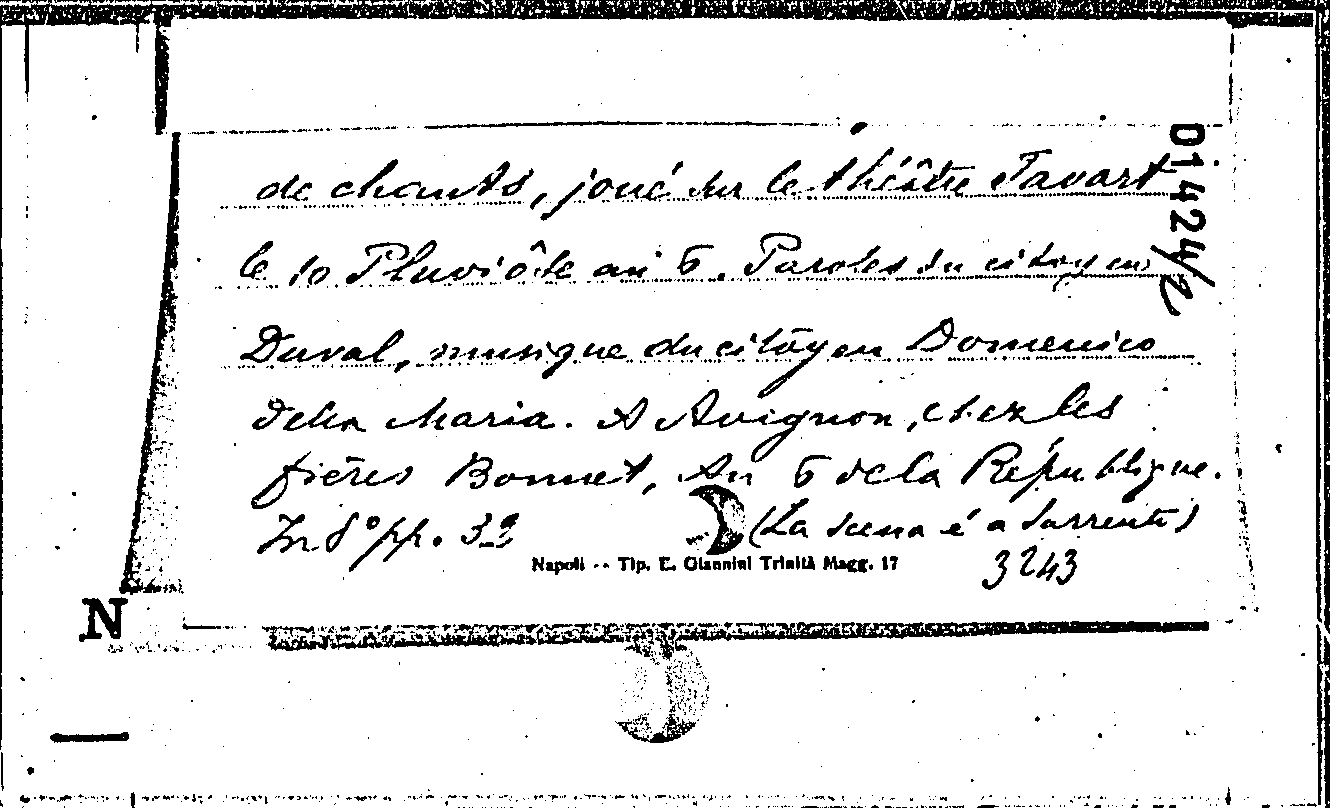 de chants, joué sur le théâtre Favart
le 10 Pluviôse an 6. Paroles du citoyen
Duval, musique du citoyen Domenico
Della Maria. A Avignon, chez les
frères Bonnet, An 6 de la République.
In 8° pp. 39 (La scena é a Sorrento)
Napoli -- Tip. E. Giannini Trinità Magg. 17
3243
D1424/2
N